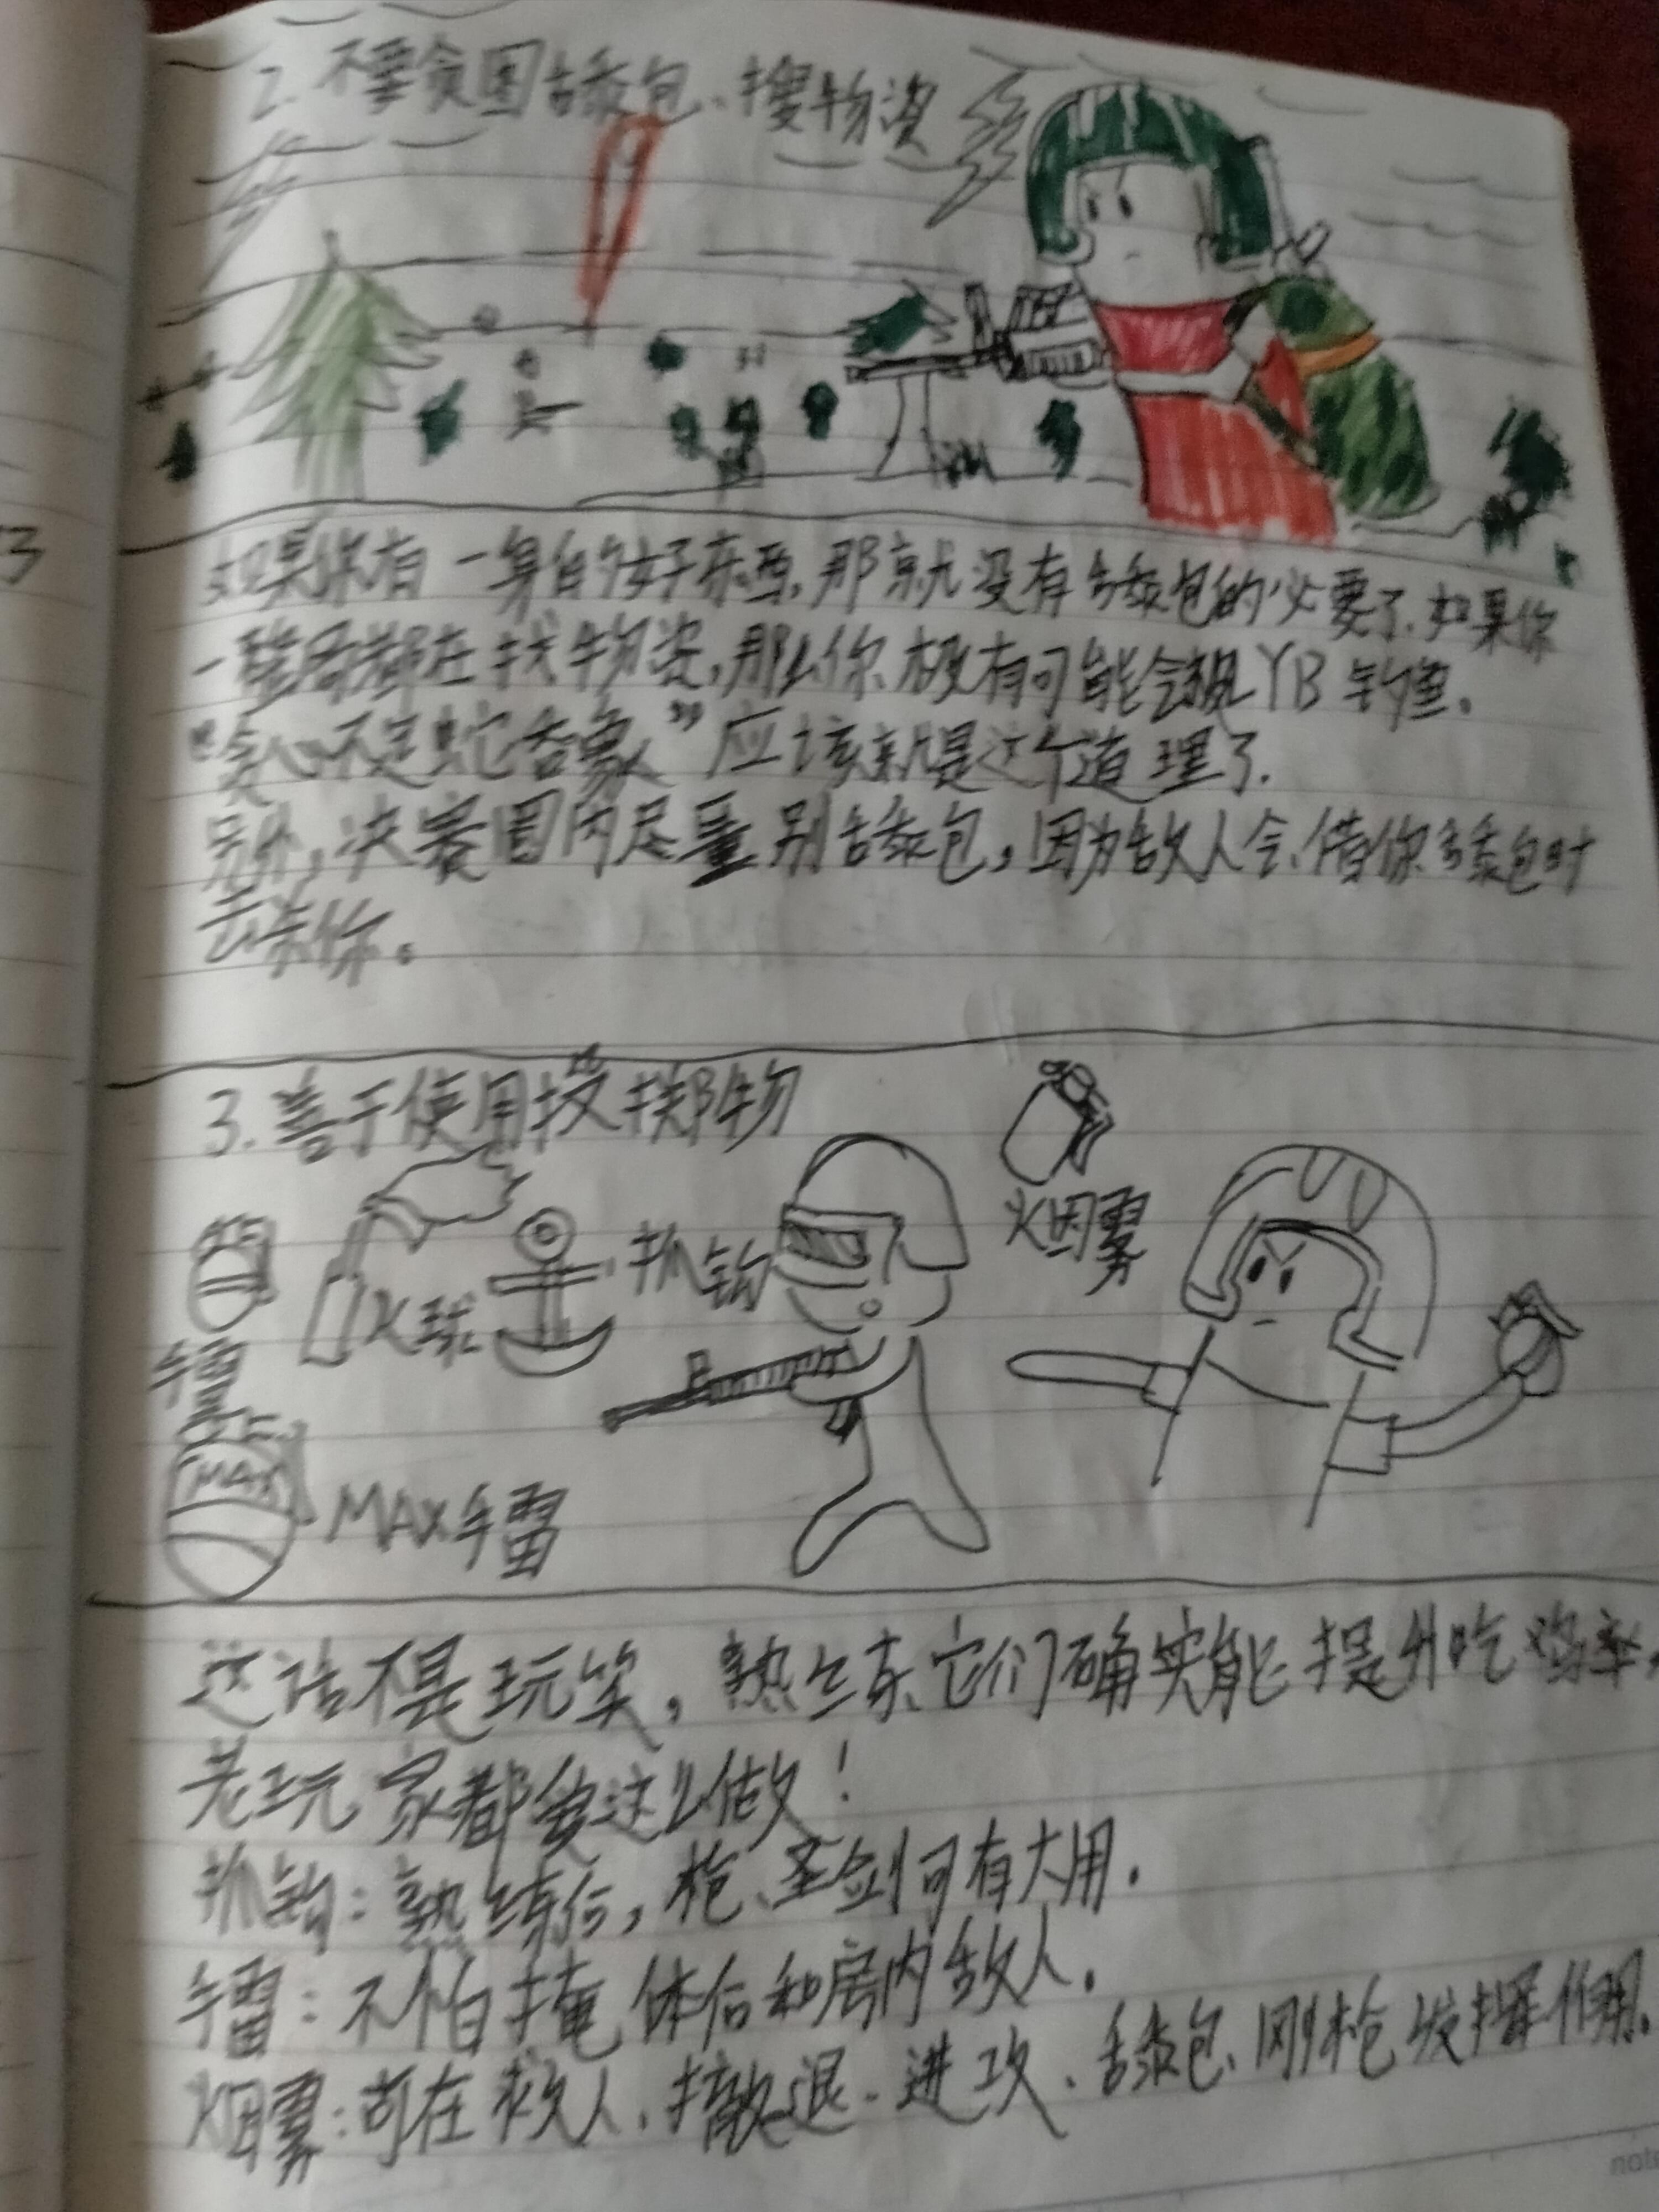 2. 不要贪图舔包、搜物资
如果你有一身的好东西,那就没有舔包的必要了.如果你
一直都在找物资,那么你极有可能会被YB 钓鱼.
“贪心不足蛇吞象”应该就是这个道理了.
另外,决赛圈内尽量别舔包,因为敌人会借你舔包时
去杀你。
3.善于使用投掷物
烟雾
抓钩
火球
手雷
MAX
MAX手雷
这话不是玩笑,熟练它们确实能提升吃鸡率,
老玩家都会这么做!
抓钩:熟练后,枪、圣剑可有大用.
手雷:不怕掩体后和房内敌人.
烟雾:可在救人、撤退、进攻、舔包、刚枪发挥作用.
note